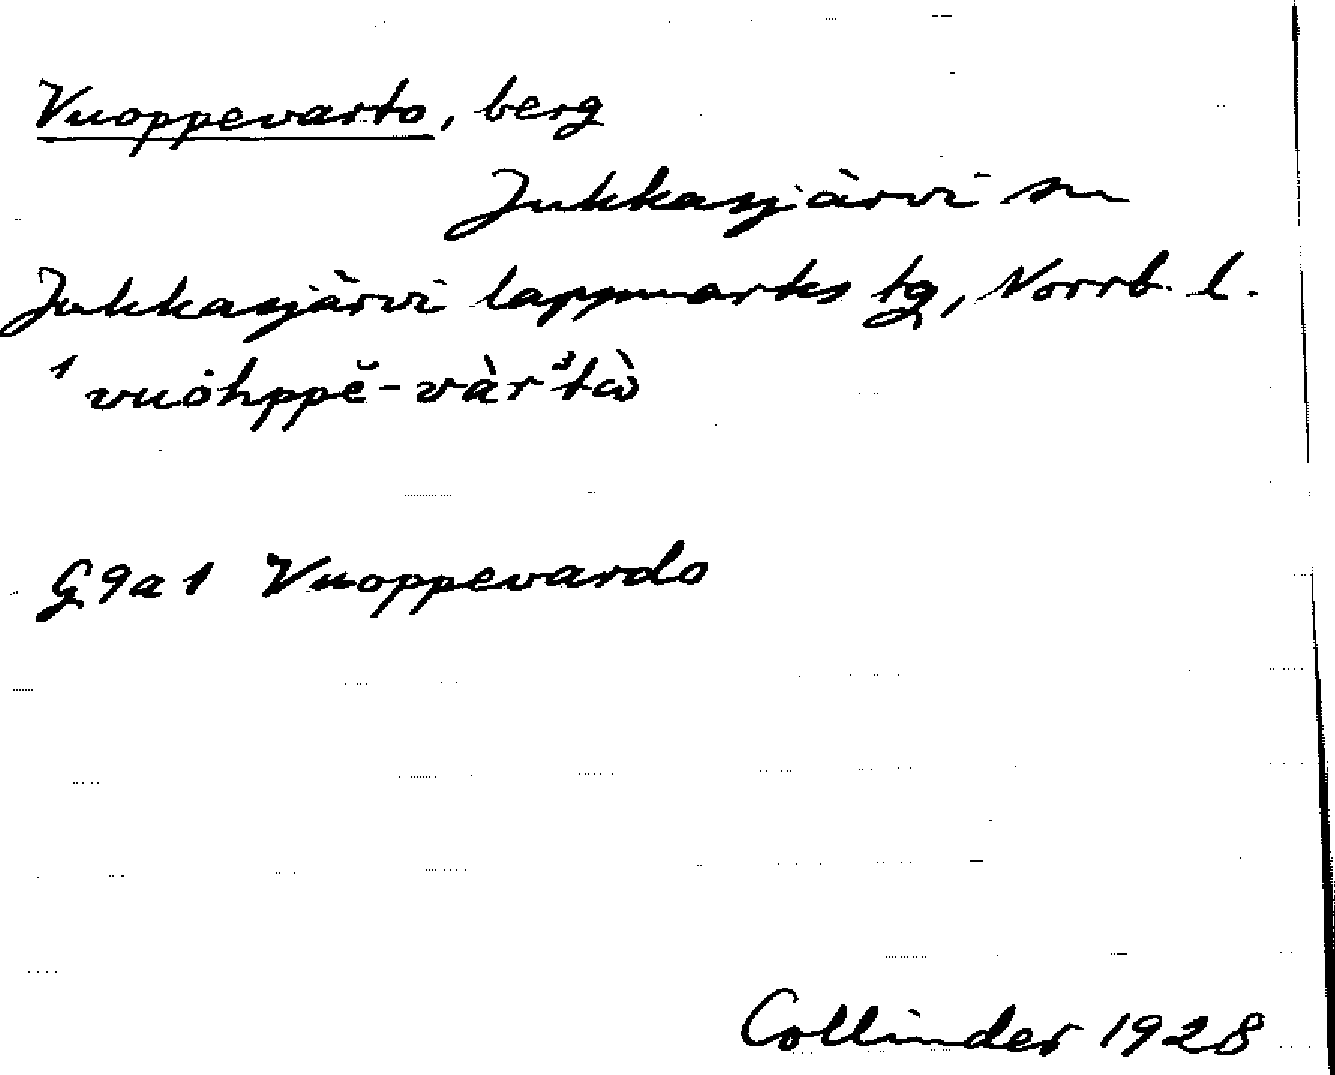 Vuoppevarto, berg
Jukkasjärvi sn
Jukkasjärvi lappmarks tg, Norrb. l.
¹ vuȯhppĕ-vàr³tὼ
G9a1 Vuoppevardo
Collinder 1928